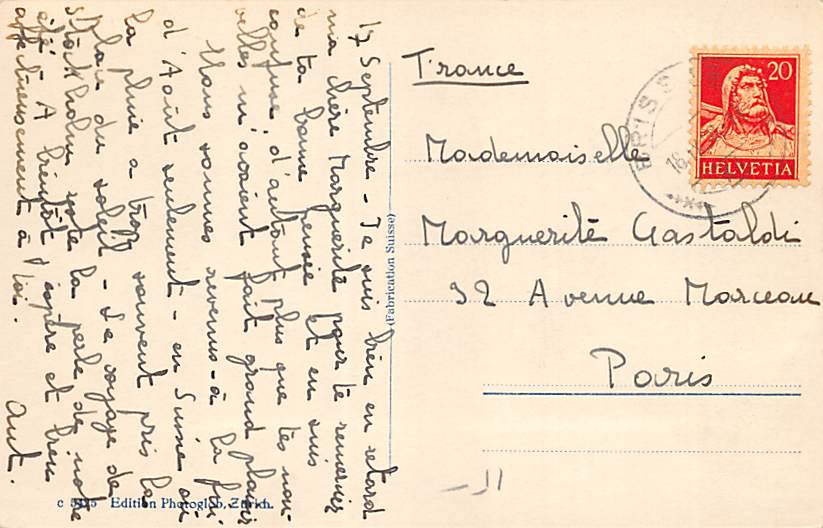 17 Septembre - Je suis bien en retard
ma chère Marguerite pour te remercier
de ta bonne pensée et en suis
confuse, d'autant plus que tes nou-
velles m'avaient fait grand plaisir
Nous sommes revenus - à la fin
d'Août seulement - en Suisse où
la pluie a trop souvent pris la
place du soleil - Le voyage de
Stockholm reste la perle de notre
été - A bientôt j'espère et bien
affectueusement à toi.
Ant.
c 5425 Edition Photoglob, Zürich.
(Fabrication Suisse)
France
Mademoiselle
Marguerite Gastaldi
32 Avenue Marceau
Paris
20
HELVETIA
BRISS